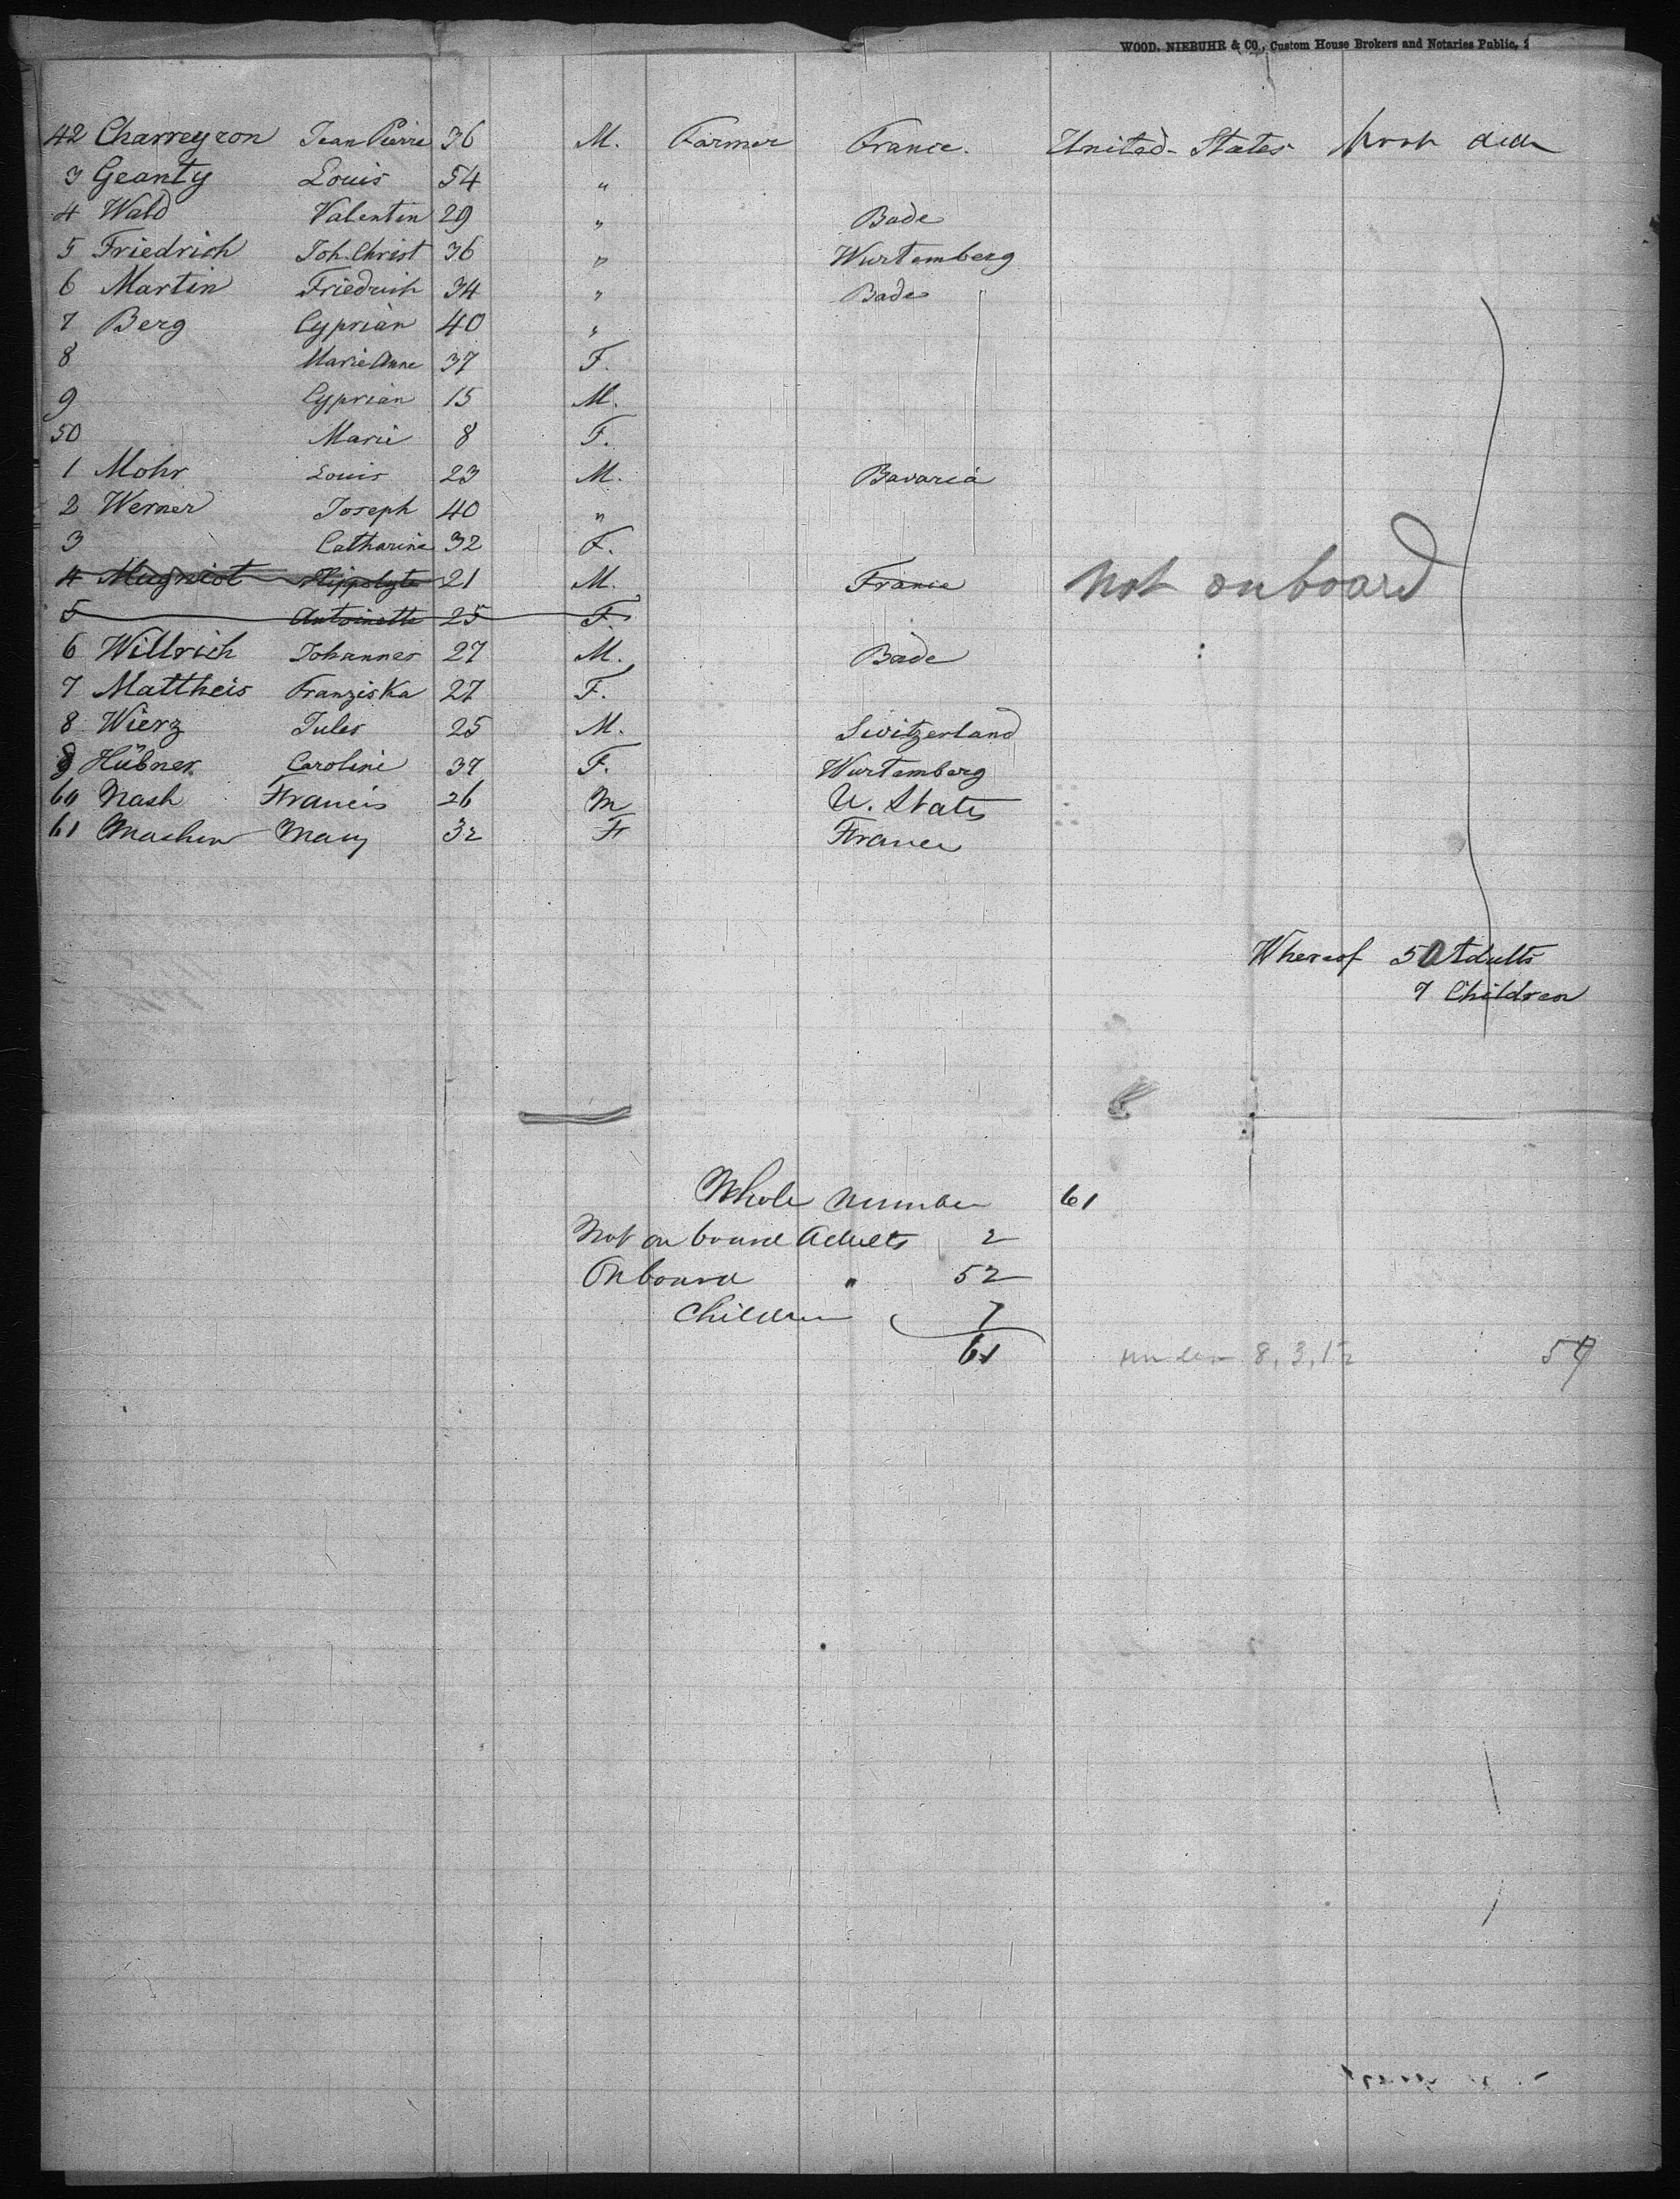 WOOD, NIEBUHR & CO., Custom House Brokers and Notaries Public,
42 Charreyron Jean Pierre 36 M. Farmer France. United-States
3 Geanty Louis 54 "
4 Wald Valentin 29 " Bade
5 Friedrich Joh. Christ 36 " Wurtemberg
6 Martin Friedrich 34 " Bade
7 Berg Cyprian 40 "
8 Marie Anne 37 F.
9 Cyprian 15 M.
50 Marie 8 F.
1 Mohr Louis 23 M. Bavaria
2 Werner Joseph 40 "
3 Catharine 32 F.
4 Mugniot Hippolyte 21 M. France not onboard
5 Antoinette 25 F.
6 Willrich Johannes 27 M. Bade
7 Mattheis Franziska 27 F.
8 Wierz Jules 25 M. Switzerland
9 Hübner Caroline 37 F. Wurtemberg
60 Nash Francis 26 M U. States
61 Mary 32 F France
Whereof 50 Adults
7 Children
Whole number 61
Not on board Adults 2
On board " 52
Children 7
61
under 8, 3, 12